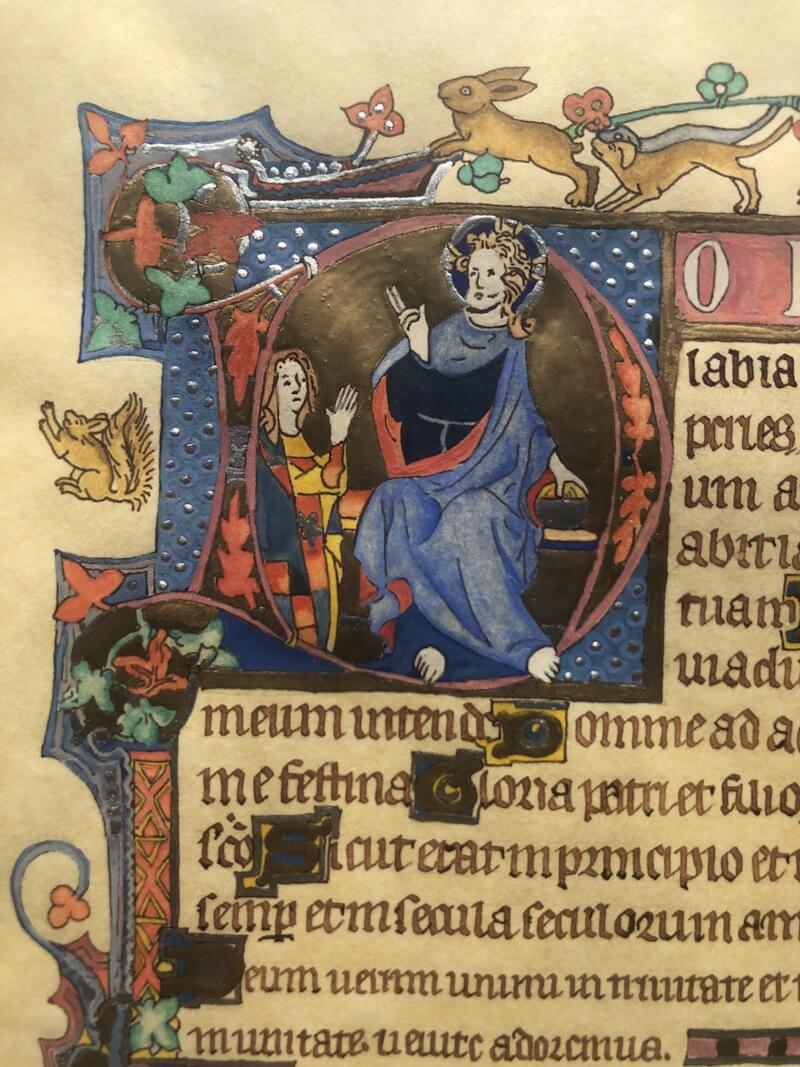 DO
labia
peries
um a
abitia
tuam
uiadu
meum intende Domine ad a
me festina Gloria patri et filio
sco Sicut erat in principio et
semp et in secula seculorum am
Deum uerum unum in trinitate et
munitate uenite adoremus.